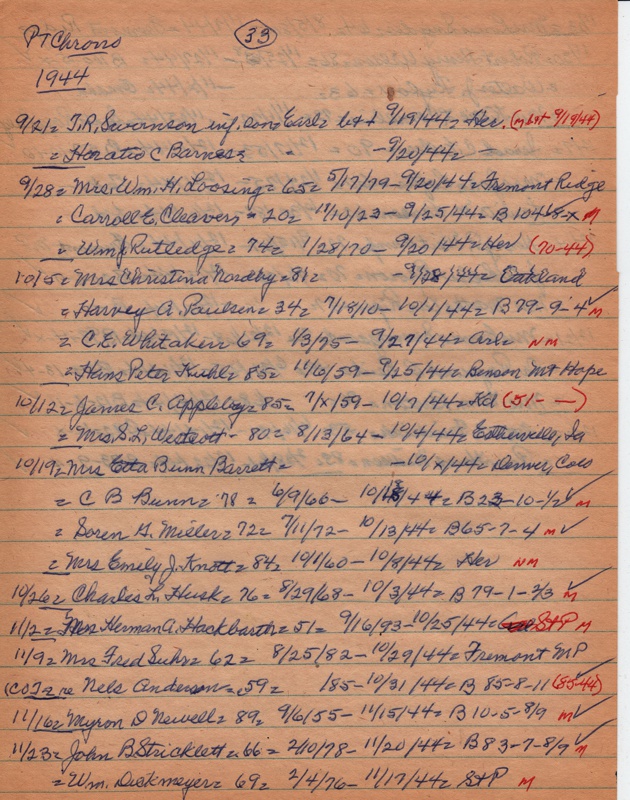 PT Chrons 33
1944
9/21= T.R. Swornson inf. son= Earl= b&d 9/19/44= Her. (m b&d 9/19/44)
= Horatio C Barnes= - -9/20/44= -
9/28= Mrs. Wm. H. Loosing= 65= 5/17/79-9/20/44= Fremont Ridge
= Carroll E. Cleaver= 20= 11/10/23-9/25/44= B 104-8-x M
= Wm J Rutledge= 74= 1/28/70-9/20/44= Her (70-44)
10/5= Mrs Christina Nordby=81= -9/28/44= Oakland
= Harvey A. Paulsen= 34= 7/18/10-10/1/44= B 79-9-4 M
= C.E. Whitaker= 69= 1/3/75-9/27/44= Arl= NM
= Hans Peter Kuhl= 85= 11/6/59-9/25/44= Benson Mt Hope
10/12= James C. Appleby= 85= 7/x/59-10/7/44= Kd (51- —)
= Mrs. S.L. Westcott- 80= 8/13/64-10/4/44= Estherville, Ia
10/19= Mrs Etta Bunn Barrett= -10/x/44= Denver, Colo
= C B Bunn= 78= 6/9/66- 10/ /44= B23-10-1/2 M
= Soren G. Miller= 72= 7/11/72-10/13/44= B65-7-4 M
= Mrs Emily J. Knott= 84= 10/1/60-10/8/44= Her NM
10/26= Charles L. Husk= 76= 8/29/68-10/3/44= B 79-1-2/3 M
11/2= Mrs Herman A. Hackbarth= 51= 9/16/93-10/25/44= St P M
11/9= Mrs Fred Suhr= 62= 8/25/82-10/29/44= Fremont MP
Nels Anderson= 59= 185-10/31/44= B 85-8-11 (85-44)
11/16= Myron D Newell= 89= 9/6/55-11/15/44= B 10-5-8/9 M
11/23= John B Stricklett= 66= 2/10/78-11/20/44= B 83-7-8/9 M
= Wm. Dickmeyer= 69= 2/4/76-11/17/44= St P M